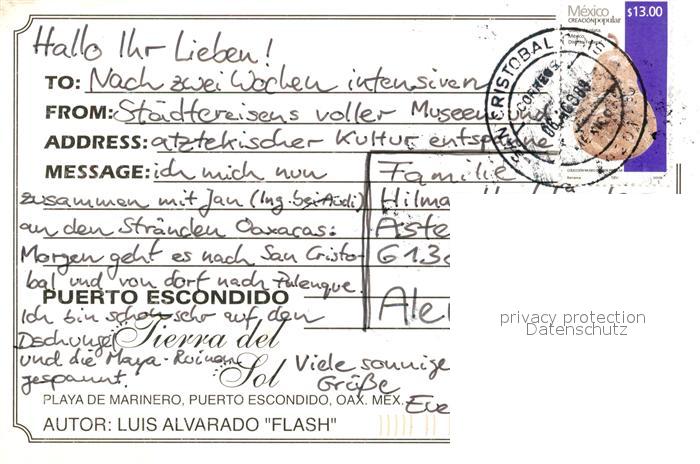 Hallo Ihr Lieben!
México $13.00
CREACIÓN popular
TO: Nach zwei Wochen intensiven
CORREOS
FROM: Städtereisens voller Museen und
ADDRESS: atztekischer Kultur entspanne
MESSAGE: ich mich nun
Familie
zusammen mit Jan (Ing. bei Audi)
Hilma
an den Stränden Oaxacas.
Aste
Morgen geht es nach San Cristo-
613
bal und von dort nach Palenque.
PUERTO ESCONDIDO
Ale
Ich bin schon sehr auf den
privacy protection
Datenschutz
Dschungel
Tierra del
und die Maya-Ruinen
Sol
Viele sonnige
gespannt.
Grüße
PLAYA DE MARINERO, PUERTO ESCONDIDO, OAX. MEX.
AUTOR: LUIS ALVARADO "FLASH"